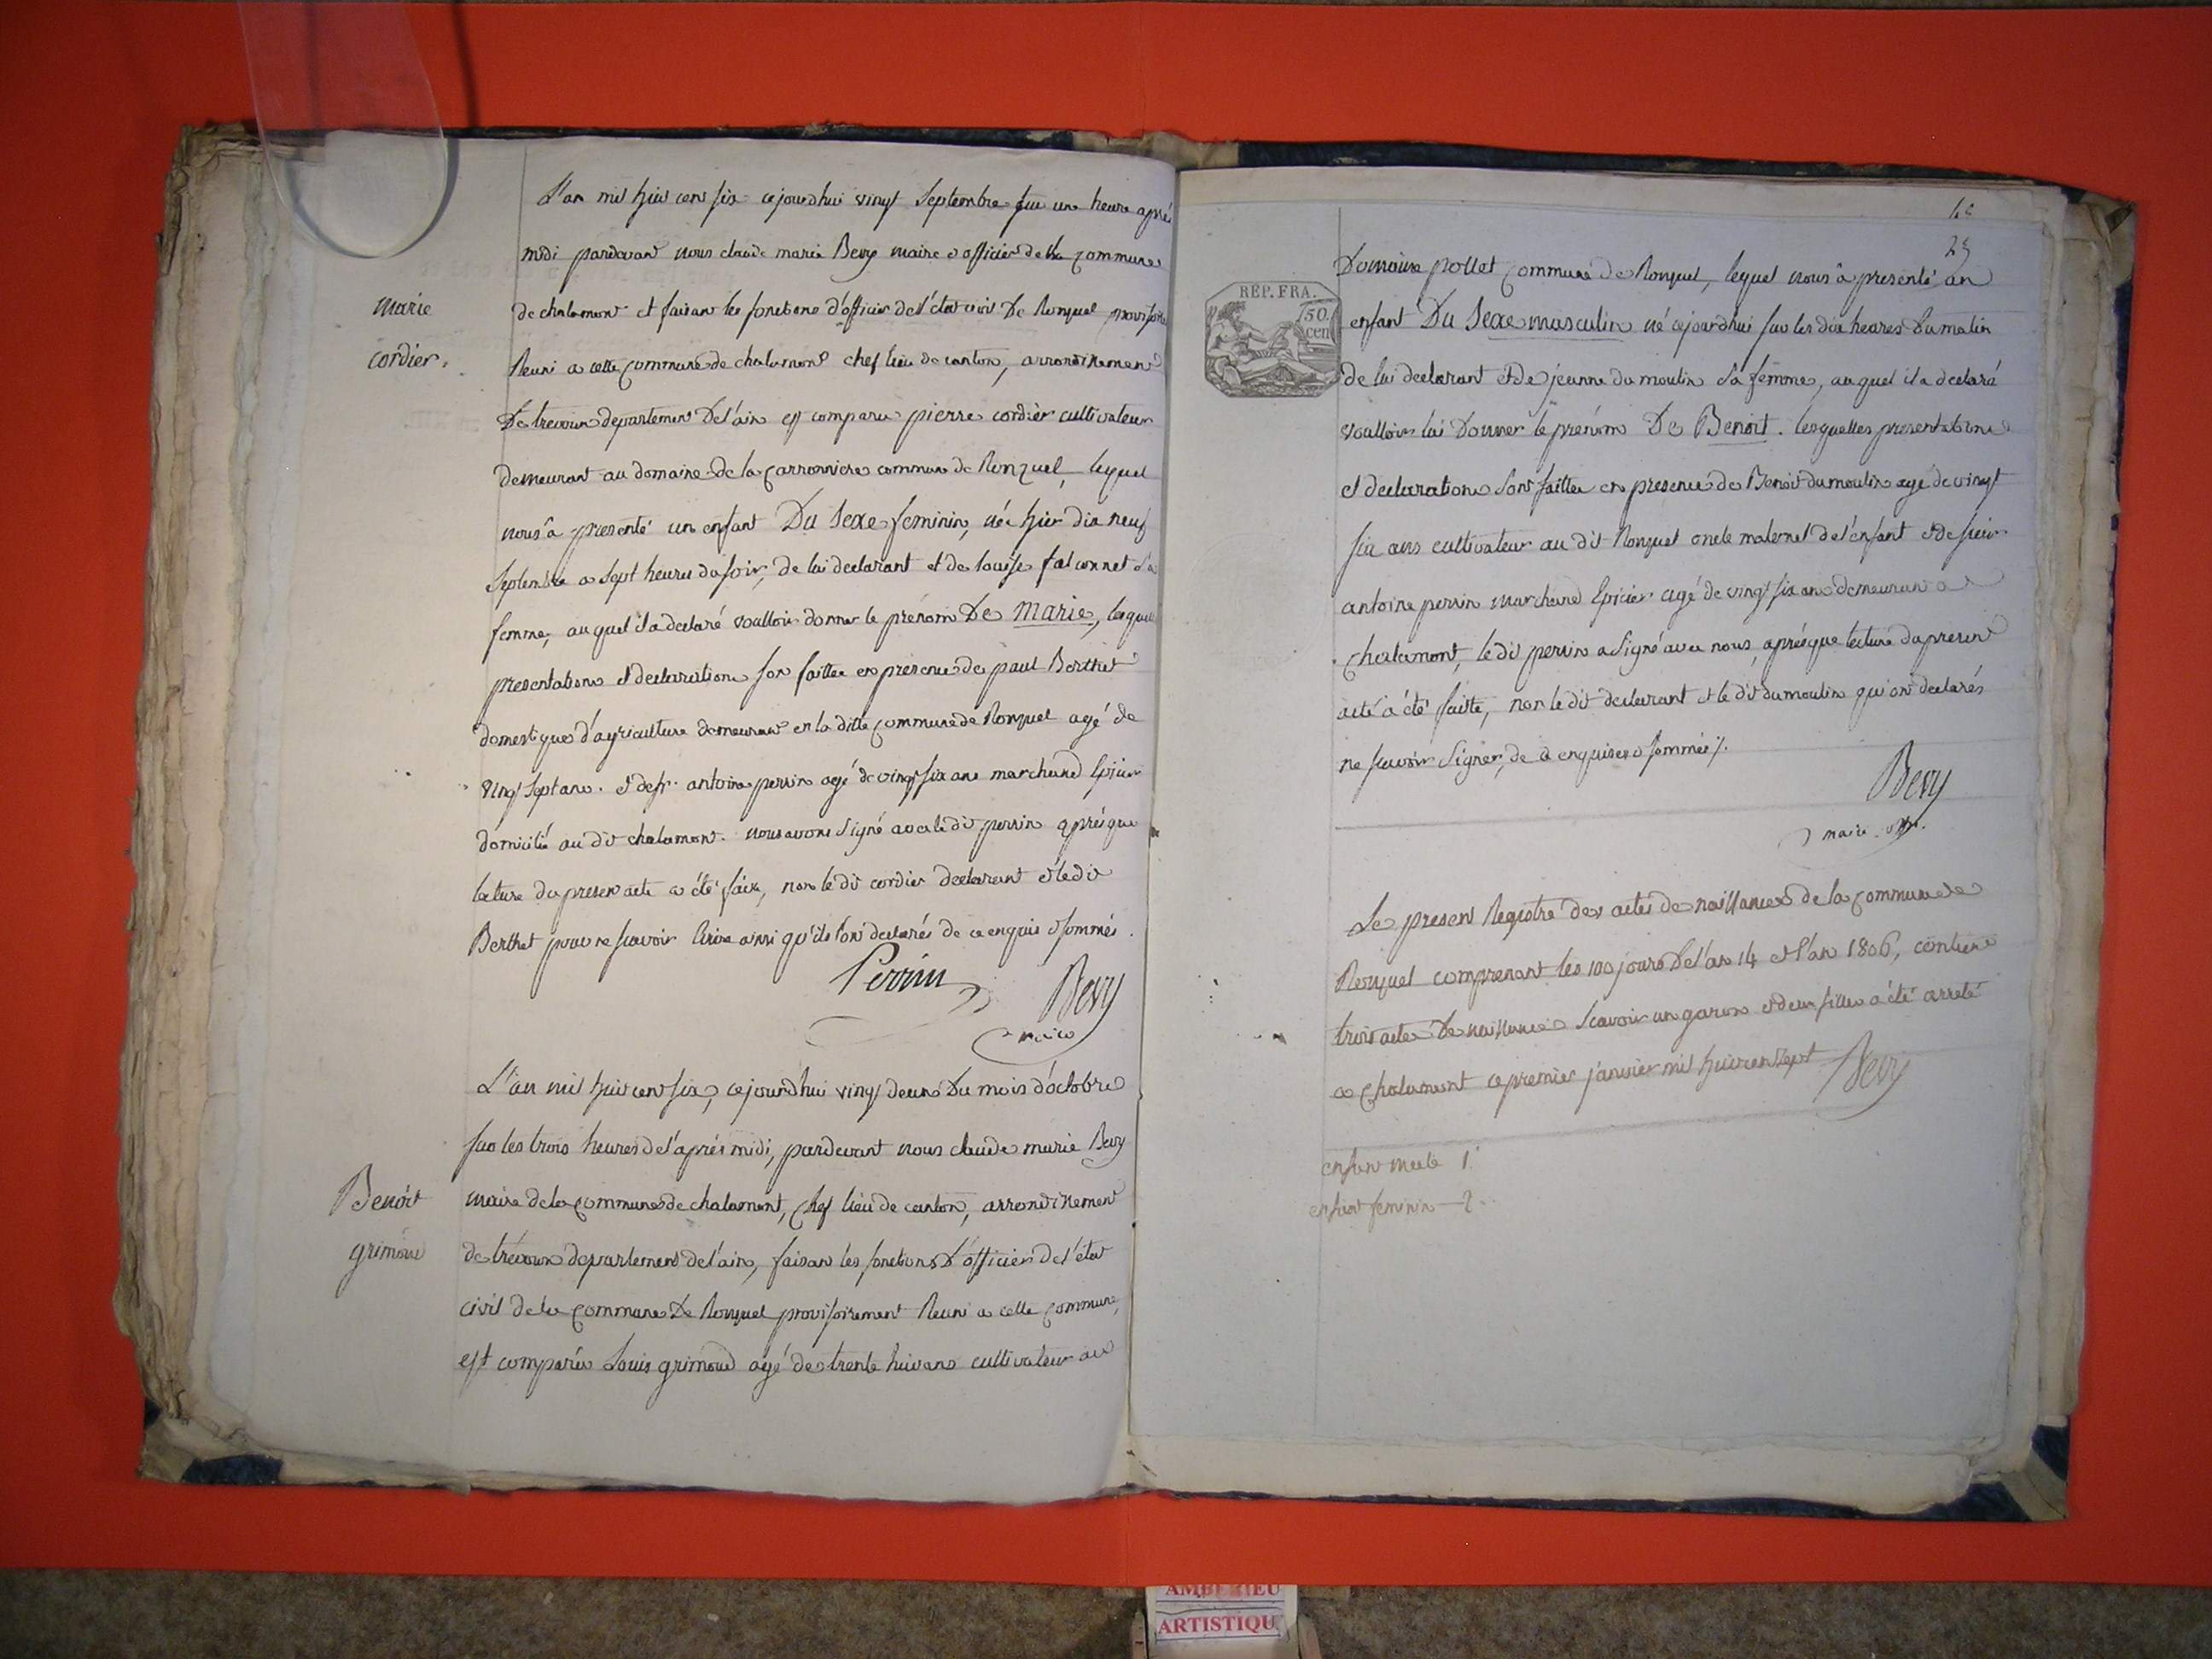 L'an mil huit cent six cejourdhui vingt Septembre sur une heure aprés
midi pardevant nous claude marie Bevy maire & officier de la commune
marie
cordier.
de chalamont et faisant les fonctions d'officier de l'état civil De Ronzuel provisoire
Reuni a cette commune de chalamont chef lieu de canton, arrondissement
De trevoux departement De l'ain est comparu pierre cordier cultivateur
demeurant au domaine de la Carronniere commune de Ronzuel, lequel
nous a presenté un enfant Du Sexe feminin, née hier dix neuf
Septembre a sept heures du soir, de lui declarant et de louise falconnet sa
femme, auquel il a declaré voulloir donner le prénom De marie, lesquel
presentations et declarations son faittes en presence de paul Berthet
domestique d'agriculture demeurant en la ditte commune de Ronzuel agé de
vingt sept ans. et de sr. antoine perrin agé de vingt six ans marchand Epicier
domicilié au dit chalamont. nous avons signé avec le dit perrin aprés que
lecture du present acte a été faite, non le dit cordier declarant et le dit
Berthet pour ne scavoir Ecrire ainsi qu'ils l'ont declarés de ce enquis & sommés.
Perrin
Bevy
maire
L'an mil huit cent six, cejourdhui vingt deux Du mois d'octobre
sur les trois heures de l'aprés midi, pardevant nous claude marie Bevy
Benoit
grimoud
maire de la commune de chalamont, chef lieu de canton, arrondissement
de trévoux departement de l'ain, faisant les fonctions D'officier de l'état
civil de la commune De Ronzuel provisoirement Reuni a cette commune,
est comparu Louis grimoud agé de trente huit ans cultivateur au
23
Domaine pollet commune de Ronzuel, lequel nous a presenté un
REP. FRA.
50
cent
enfant Du Sexe masculin né cejourdhui sur les dix heures du matin
de lui declarant et de jeanne dumoulin sa femme, auquel il a declaré
voulloir lui Donner le prénom De Benoit. lesquelles presentations
et declarations sont faittes en presence de Benoit dumoulin agé de vingt
six ans cultivateur au dit Ronzuel oncle maternel de l'enfant et de sieur
antoine perrin marchand Epicier agé de vingt six ans demeurant a
Chalamont, le dit perrin a signé avec nous, aprés que lecture du present
acte a été faitte, non le dit declarant et le dit dumoulin qui ont declarés
ne scavoir signer, de ce enquis & sommés %.
Bevy
maire
Le present Registre des actes de naissances de la commune de
Ronzuel comprenant les 100 jours De l'an 14 et l'an 1806, contient
trois actes De naissances scavoir un garcon et deux filles a été arreté
a Chalamont ce premier janvier mil huit cent sept Bevy
enfant male 1.
enfant feminin — 2.
AMBERIEU
ARTISTIQU